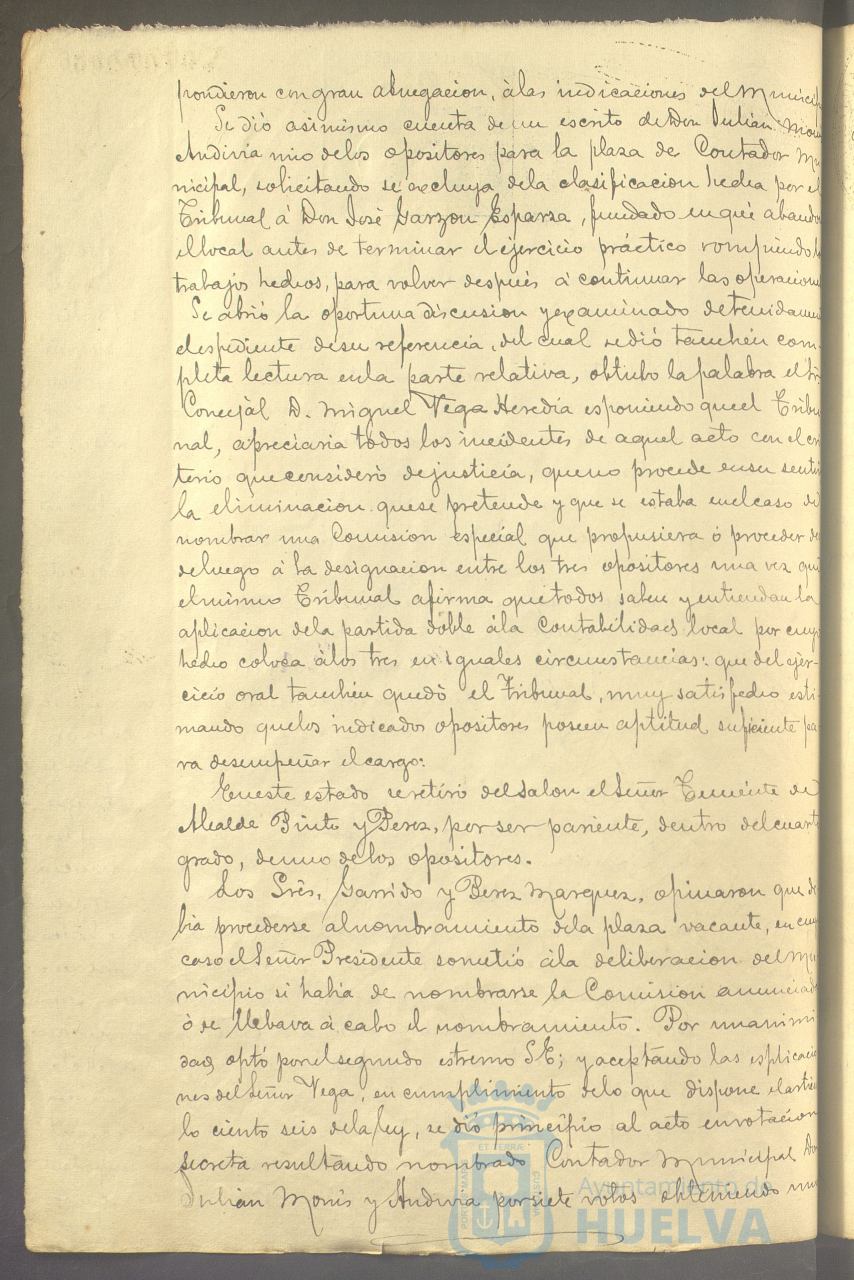 pondieron con gran abnegacion, á las indicaciones del Municip
Se dió asimismo cuenta de un escrito de Don Julián Moni
Andivia uno de los opositores para la plaza de Contador Mu
nicipal, solicitando se excluya de la clasificacion hecha por el
Tribunal á Don José Garzon Esparza, fundado en que abando
el local antes de terminar el ejercicio práctico rompiendo l
trabajos hechos, para volver después á continuar las operacione
Se abrió la oportuna discusion y examinado detenidamen
el espediente de su referencia, del cual se dió tambien com-
pleta lectura en la parte relativa, obtubo la palabra el Sr.
Concejál D. Miguel Vega Heredia esponiendo que el Tribu
nal, apreciaria todos los incidentes de aquel acto con el cri
terio que consideró de justicia, que no procede en su senti
la eliminacion que se pretende y que se estaba en el caso de
nombrar una Comision especial que propusiera ó proceder de
de luego á la designacion entre los tres opositores una vez que
el mismo Tribunal afirma que todos saben y entiendan la
aplicacion de la partida doble á la Contabilidad local por cuyo
hecho coloca á los tres en iguales circunstancias: que del ejer-
cicio oral tambien quedó el Tribunal, muy satisfecho esti-
mando que los indicados opositores poseen aptitud suficiente pa-
ra desempeñar el cargo:
En este estado se retiró del Salon el Señor Teniente de
Alcalde Pinto y Perez, por ser pariente, dentro del cuarto
grado, de uno de los opositores.
Los Srés. Garrido y Perez Marquez, opinaron que de
bia procederse al nombramiento de la plaza vacante, en cuy
caso el Señor Presidente sometió á la deliberacion del Mu
nicipio si habia de nombrarse la Comision anunciada
ó se llebava á cabo el nombramiento. Por unanimi
dad, optó por el segundo estremo S.E; y aceptando las esplicacio
nes del Señor Vega, en cumplimiento de lo que dispone el artícu
lo ciento seis de la ley, se dió principio al acto en votacion
secreta resultando nombrado Contador Municipal Don
Julian Monis y Andivia por siete votos obteniendo un
PORTUS MARIS ET TERRÆ CUSTODIA
Ayuntamiento de
HUELVA